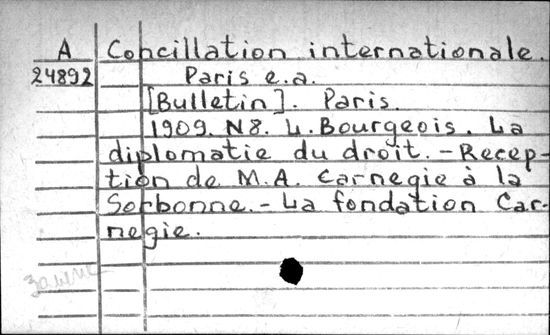 A Concillation internationale.
24892 Paris e.a.
[Bulletin]. Paris.
1909. N8. L. Bourgeois. La
diplomatie du droit. - Recep-
tion de M.A. Carnegie à la
Sorbonne. - La fondation Car-
negie.